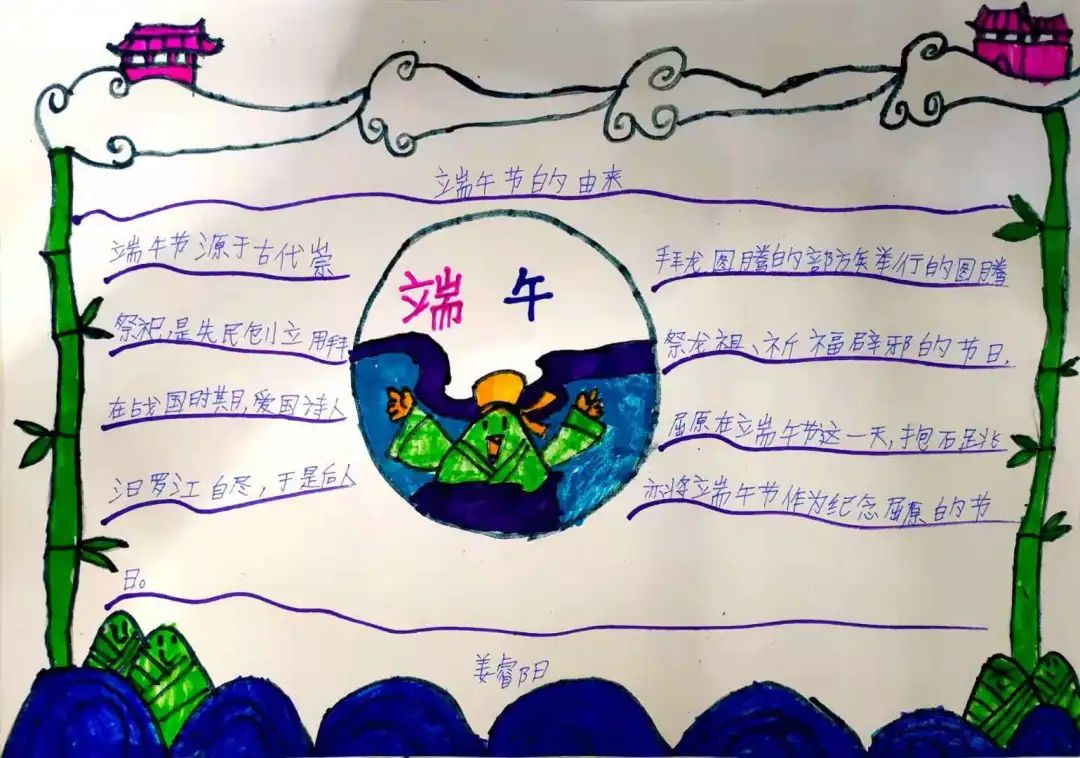 端午节的由来
端午
端午节源于古代崇 拜龙图腾的部族举行的图腾
祭祀,是先民创立用拜 祭龙祖、祈福辟邪的节日.
在战国时期,爱国诗人 屈原在端午节这一天,抱石跳
汨罗江自尽,于是后人 亦将端午节作为纪念屈原的节
日。
姜睿阳